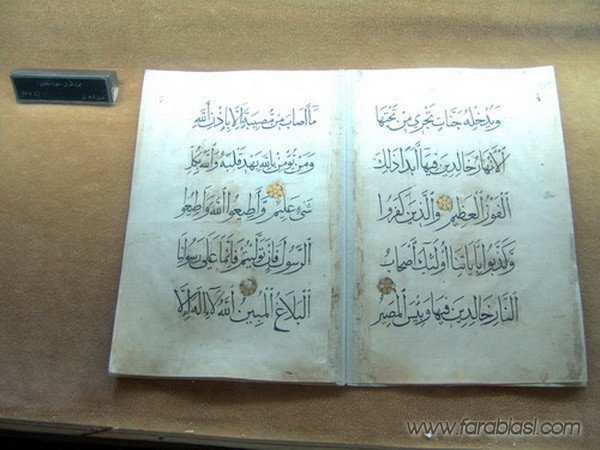 ويدخله جنات تجري من تحتها
الأنهار خالدين فيها أبدا ذلك
الفوز العظيم والذين كفروا
وكذبوا بآياتنا أولئك أصحاب
النار خالدين فيها وبئس المصير
ما أصاب من مصيبة إلا بإذن الله
ومن يؤمن بالله يهد قلبه والله بكل
شئ عليم وأطيعوا الله وأطيعوا
الرسول فإن توليتم فإنما على رسولنا
البلاغ المبين الله لا إله إلا
www.farablasl.com